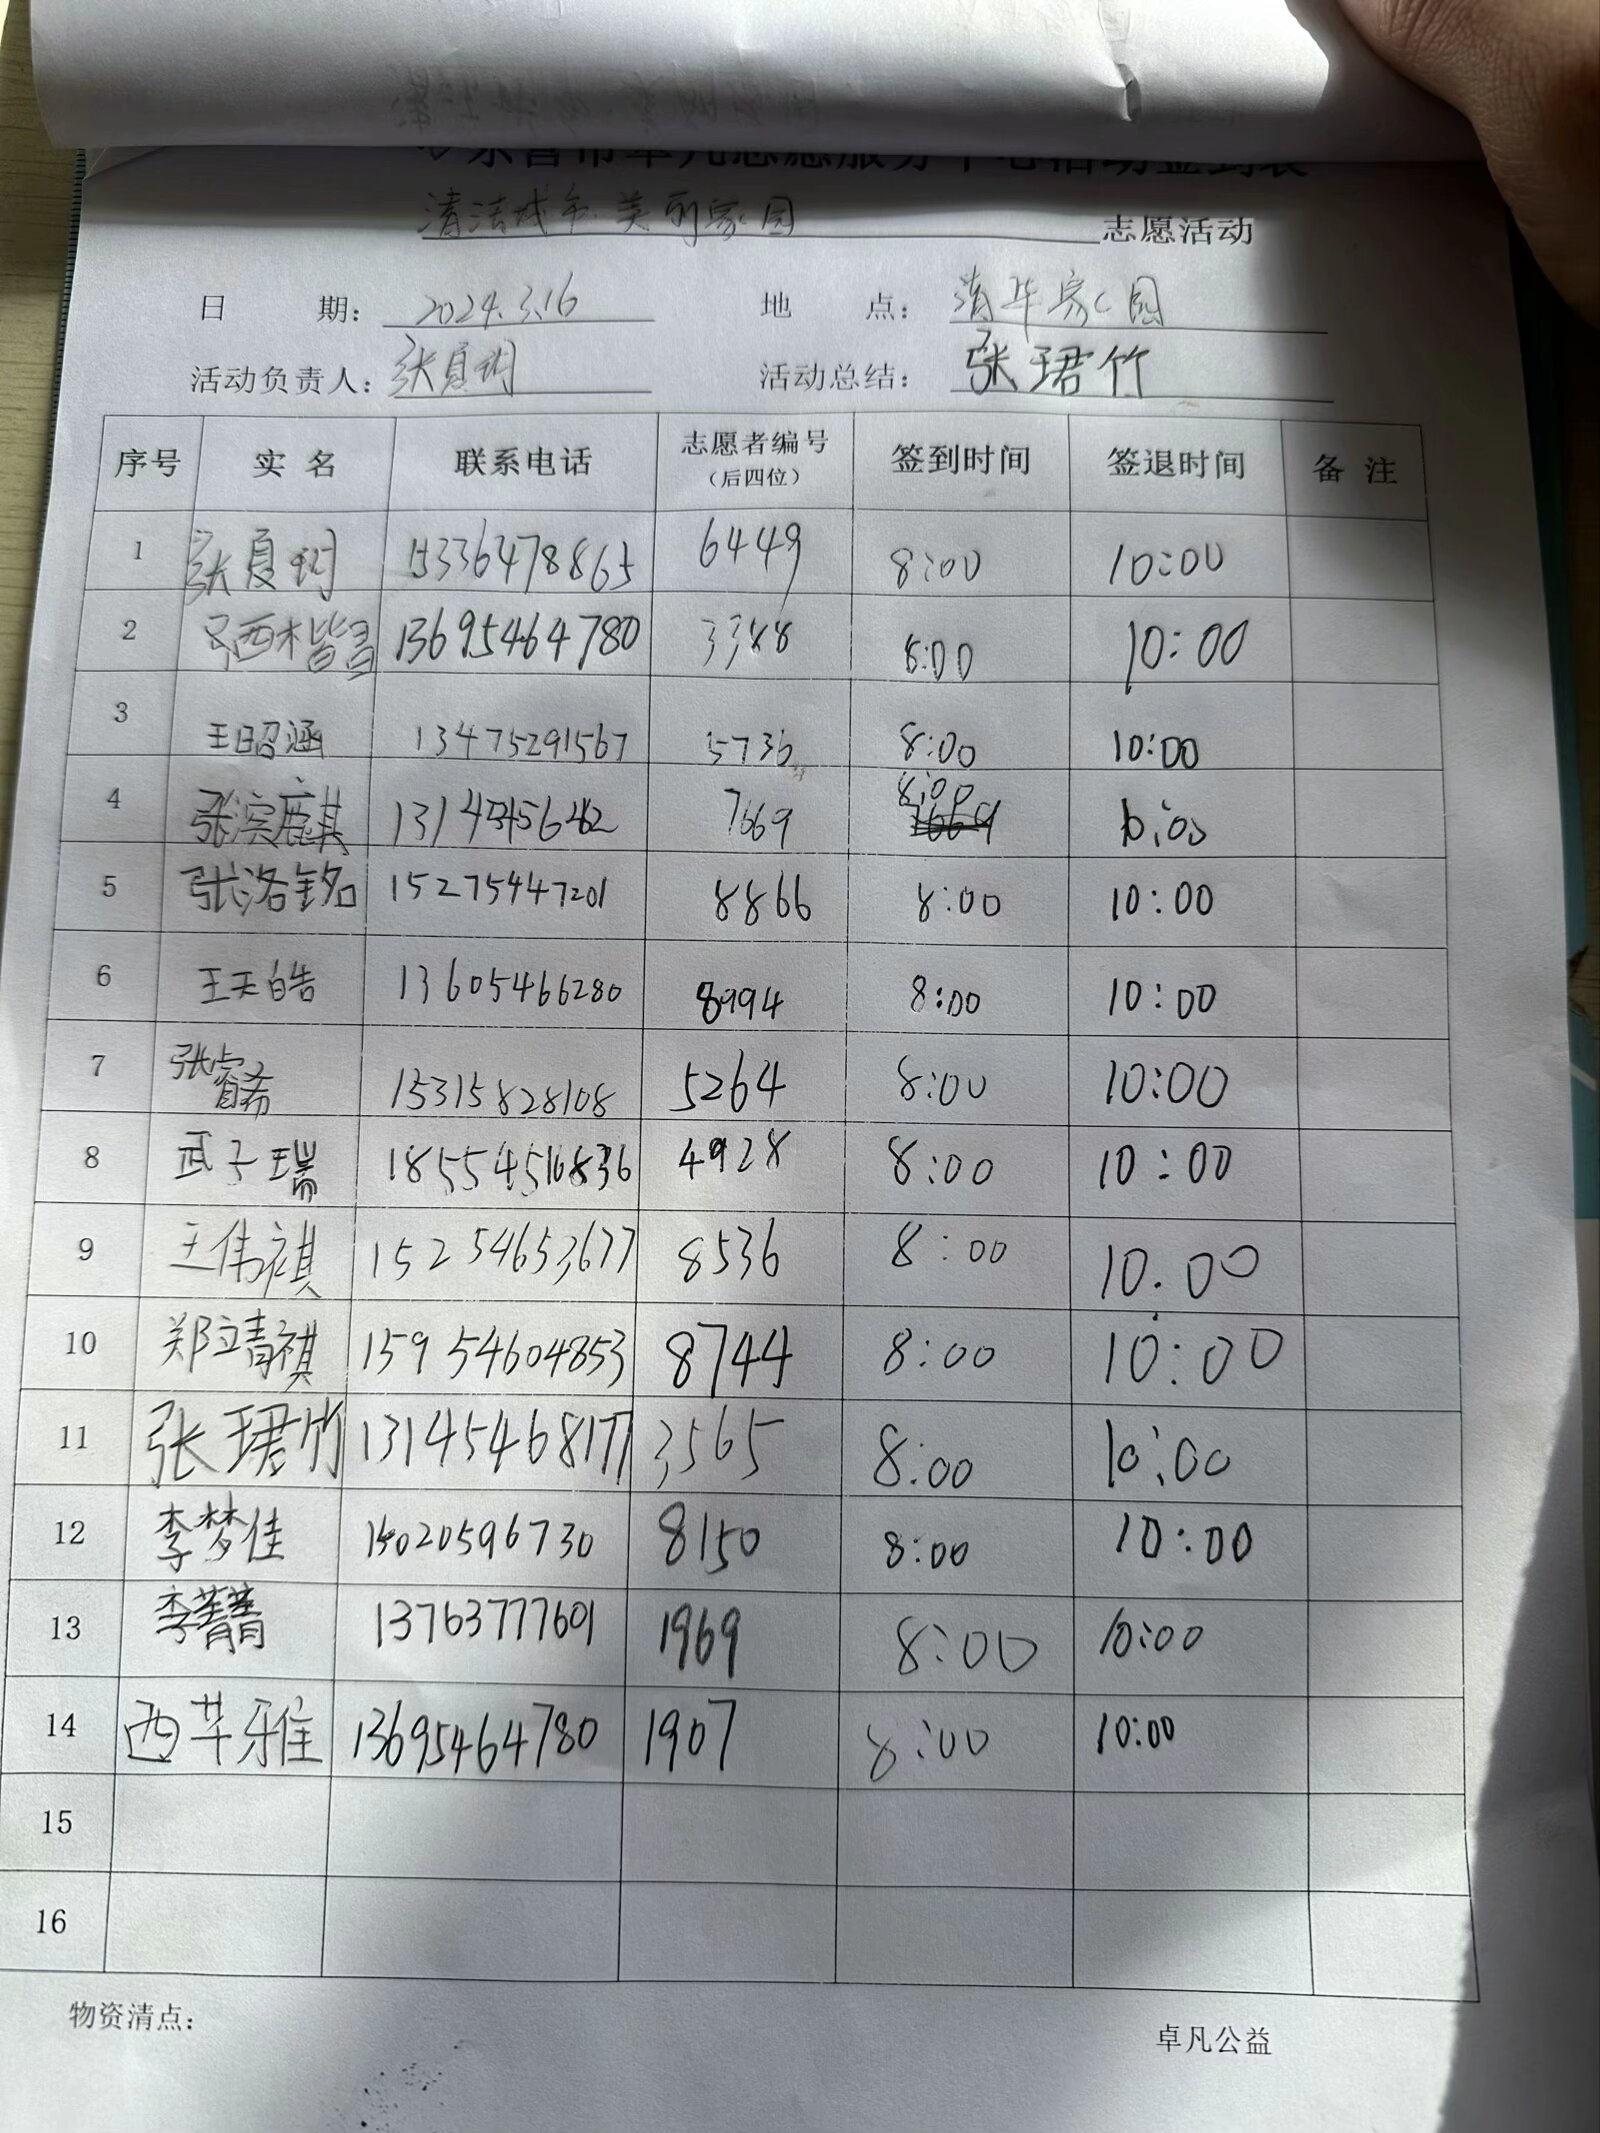 东营市卓凡志愿服务中心活动签到表
清洁城市 美丽家园 志愿活动
日 期: 2024.3.16 地 点: 清华家园
活动负责人: 张夏玥 活动总结: 张珺竹
序号 实名 联系电话 志愿者编号(后四位) 签到时间 签退时间 备注
1 张夏玥 15336478865 6449 8:00 10:00
2 13695464780 3388 8:00 10:00
3 王昭涵 13475291567 5736 8:00 10:00
4 张滨麒 7669 8:00 10:00
5 张洛铭 15275447201 8866 8:00 10:00
6 王天皓 13605466280 8994 8:00 10:00
7 张睿希 15315828108 5264 8:00 10:00
8 武子瑞 18554516836 4928 8:00 10:00
9 王伟祺 15254653677 8536 8:00 10:00
10 郑靖祺 15954604853 8744 8:00 10:00
11 张珺竹 13145468177 3565 8:00 10:00
12 李梦佳 15020596730 8150 8:00 10:00
13 李菁菁 13763777601 1969 8:00 10:00
14 西芊雅 13695464780 1907 8:00 10:00
15
16
物资清点:
卓凡公益